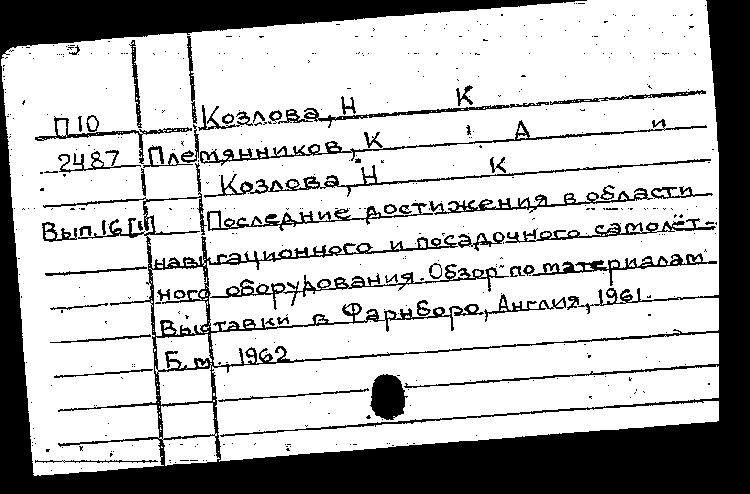 П 10 Козлова, Н К
2487 Племянников, К А и
Козлова, Н К
Вып. 16 [11] Последние достижения в области
навигационного и посадочного самолёт-
ного оборудования. Обзор по материалам
Выставки в Фарнборо, Англия, 1961.
Б. м., 1962